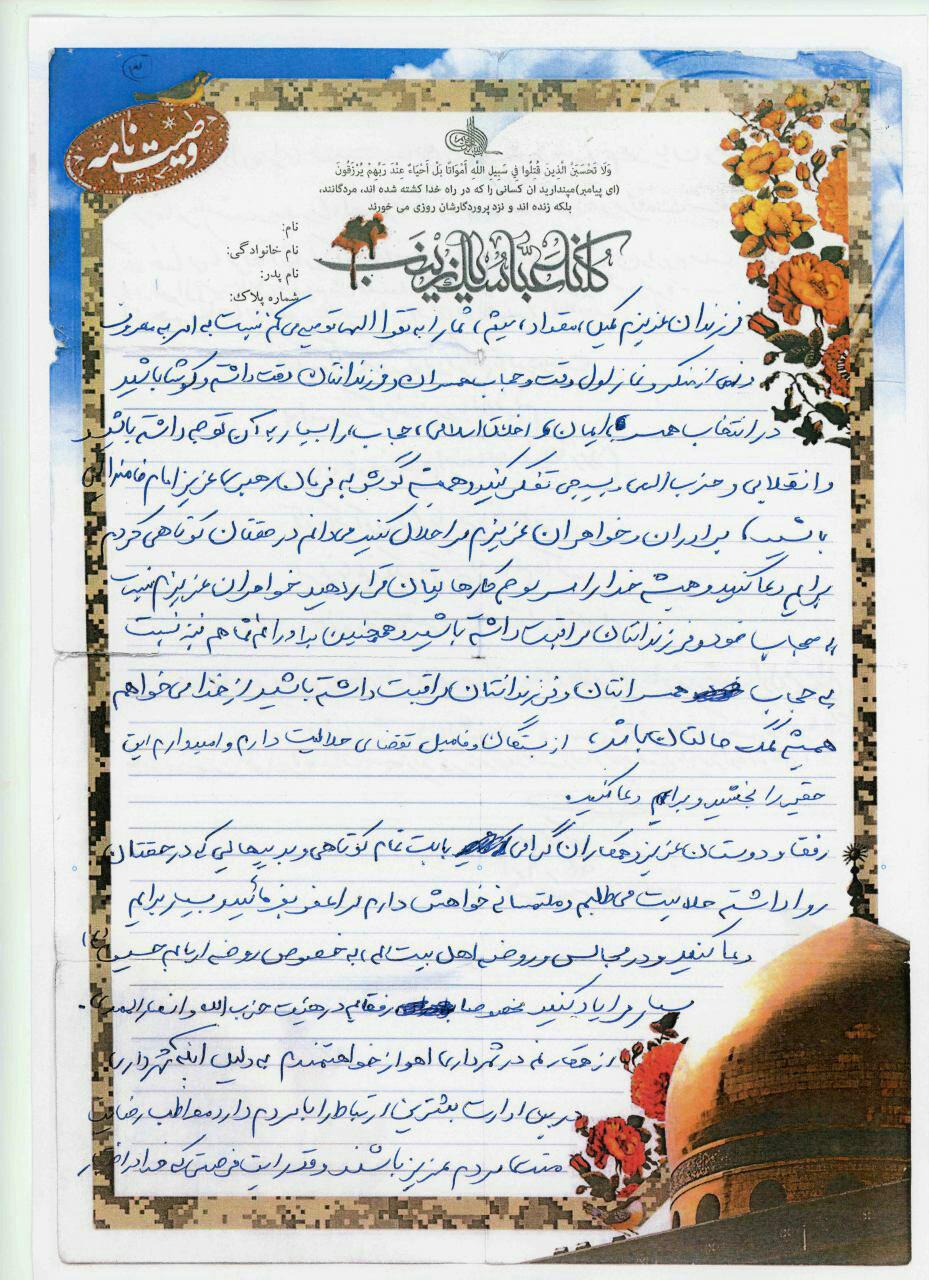 ۳
وصیت نامه
وَلَا تَحْسَبَنَّ الَّذِينَ قُتِلُوا فِي سَبِيلِ اللَّهِ أَمْوَاتًا بَلْ أَحْيَاءٌ عِنْدَ رَبِّهِمْ يُرْزَقُونَ
(ای پیامبر)مپندارید ان کسانی را که در راه خدا کشته شده اند، مردگانند،
بلکه زنده اند و نزد پروردگارشان روزی می خورند
نام:
نام خانوادگی:
نام پدر:
شماره پلاک:
کلنا عباسک یا زینب
فرزندان عزیزم کمیل، مقداد، میثم، شما را به تقوا الهی توصیه می کنم نسبت به امر به معروف
و نهی از منکر و نماز اول وقت و حجاب همسران و فرزندانتان دقت داشته و کوشا باشید
در انتخاب همسر با ایمان و اخلاق اسلامی، حجاب، را بسیار به آن توجه داشته باشید
و انقلابی و حزب الهی و بسیجی تفکر کنید و همیشه گوش به فرمان رهبری عزیز امام خامنه ای
باشید، برادران و خواهران عزیزم مرا حلال کنید می دانم در حقتان کوتاهی کردم
برایم دعا کنید و همیشه خدا را سر لوحه کارهایتان قرار دهید خواهران عزیزم نسبت
به حجاب خود و فرزندانتان مراقبت داشته باشید و همچنین برادرانم شما هم نیز نسبت
به حجاب همسرانتان و فرزندانتان مراقبت داشته باشید از خدا می خواهم
همیشه کمک حالتان باشد، از بستگان و فامیل تقضای حلالیت دارم و امیدوارم این
حقیر را ببخشید و برایم دعا کنید.
رفقا و دوستان عزیز و همکاران گرامی بابت تمام کوتاهی و بدیهایی که در حقتان
روا داشته حلالیت می طلبم و ملتمسانه خواهش دارم مرا عفو بفرمائید و بسیار برایم
دعا کنید و در مجالس و روضه اهل بیت الهی، به خصوص روضه اربابم حسین (ع)
بسیار مرا یاد کنید مخصوصا رفقایم در هیئت حزب الله و انصارالمهدی.
از همکارانم در شهرداری اهواز خواهشتمندم به دلیل اینکه شهرداری
در بین ادارت بیشترین ارتباط را با مردم دارد مواظب رضایت
مردم عزیز باشند و قدر این فرصتی که خدا در